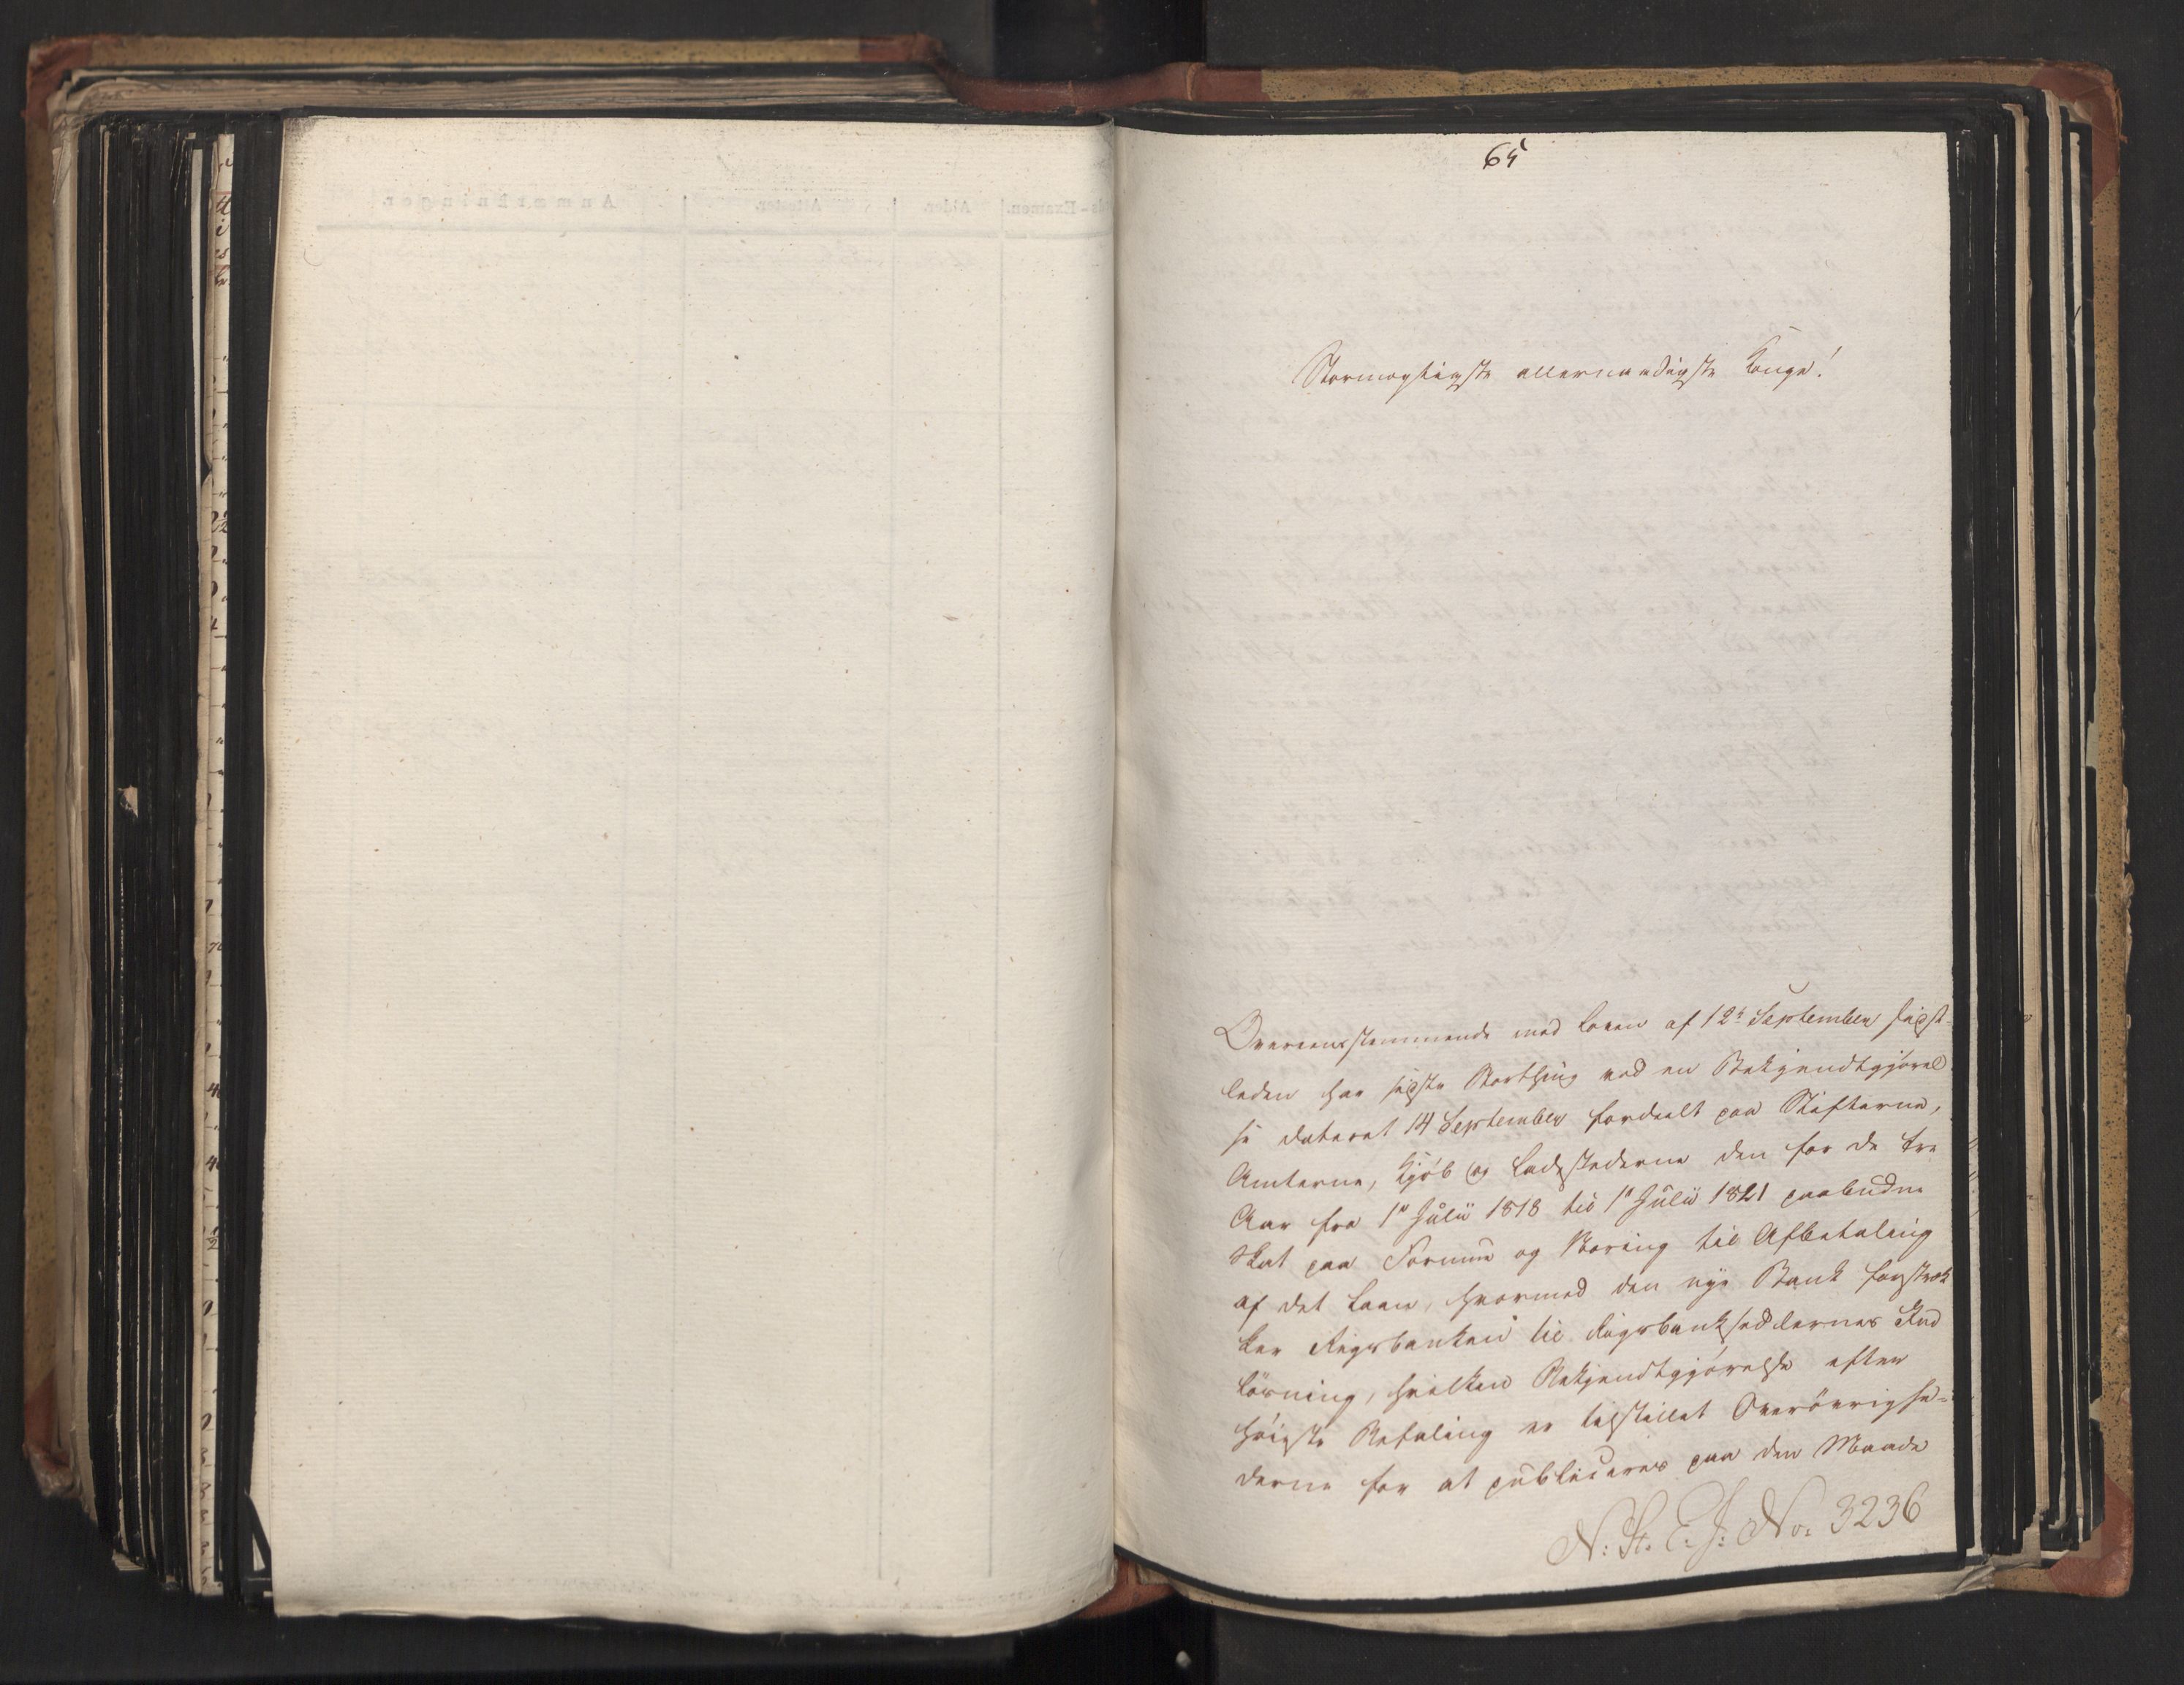 65
Stormægtigste allernaadigste Konge!
Overeensstemmende med Loven af 12te September sidst-
leden har sidste Storthing ved en Bekjendtgjørel
se dateret 14 September fordeelt paa Stifterne,
Amterne, Kjøb og Ladestederne den for de tre
Aar fra 1ste Julii 1818 til 1ste Julii 1821 paabudne
Skat paa Formue og Næring til Afbetaling
af det Laan, hvormed den nye Bank forstræk
ker Rigsbanken til Rigsbanksedlernes Ind
løsning, hvilken Bekjendtgjørelse efter
høieste Befaling er tilstillet Overøvrighe-
derne for at publiceres paa den Maade
N: St. E: J: No: 3236